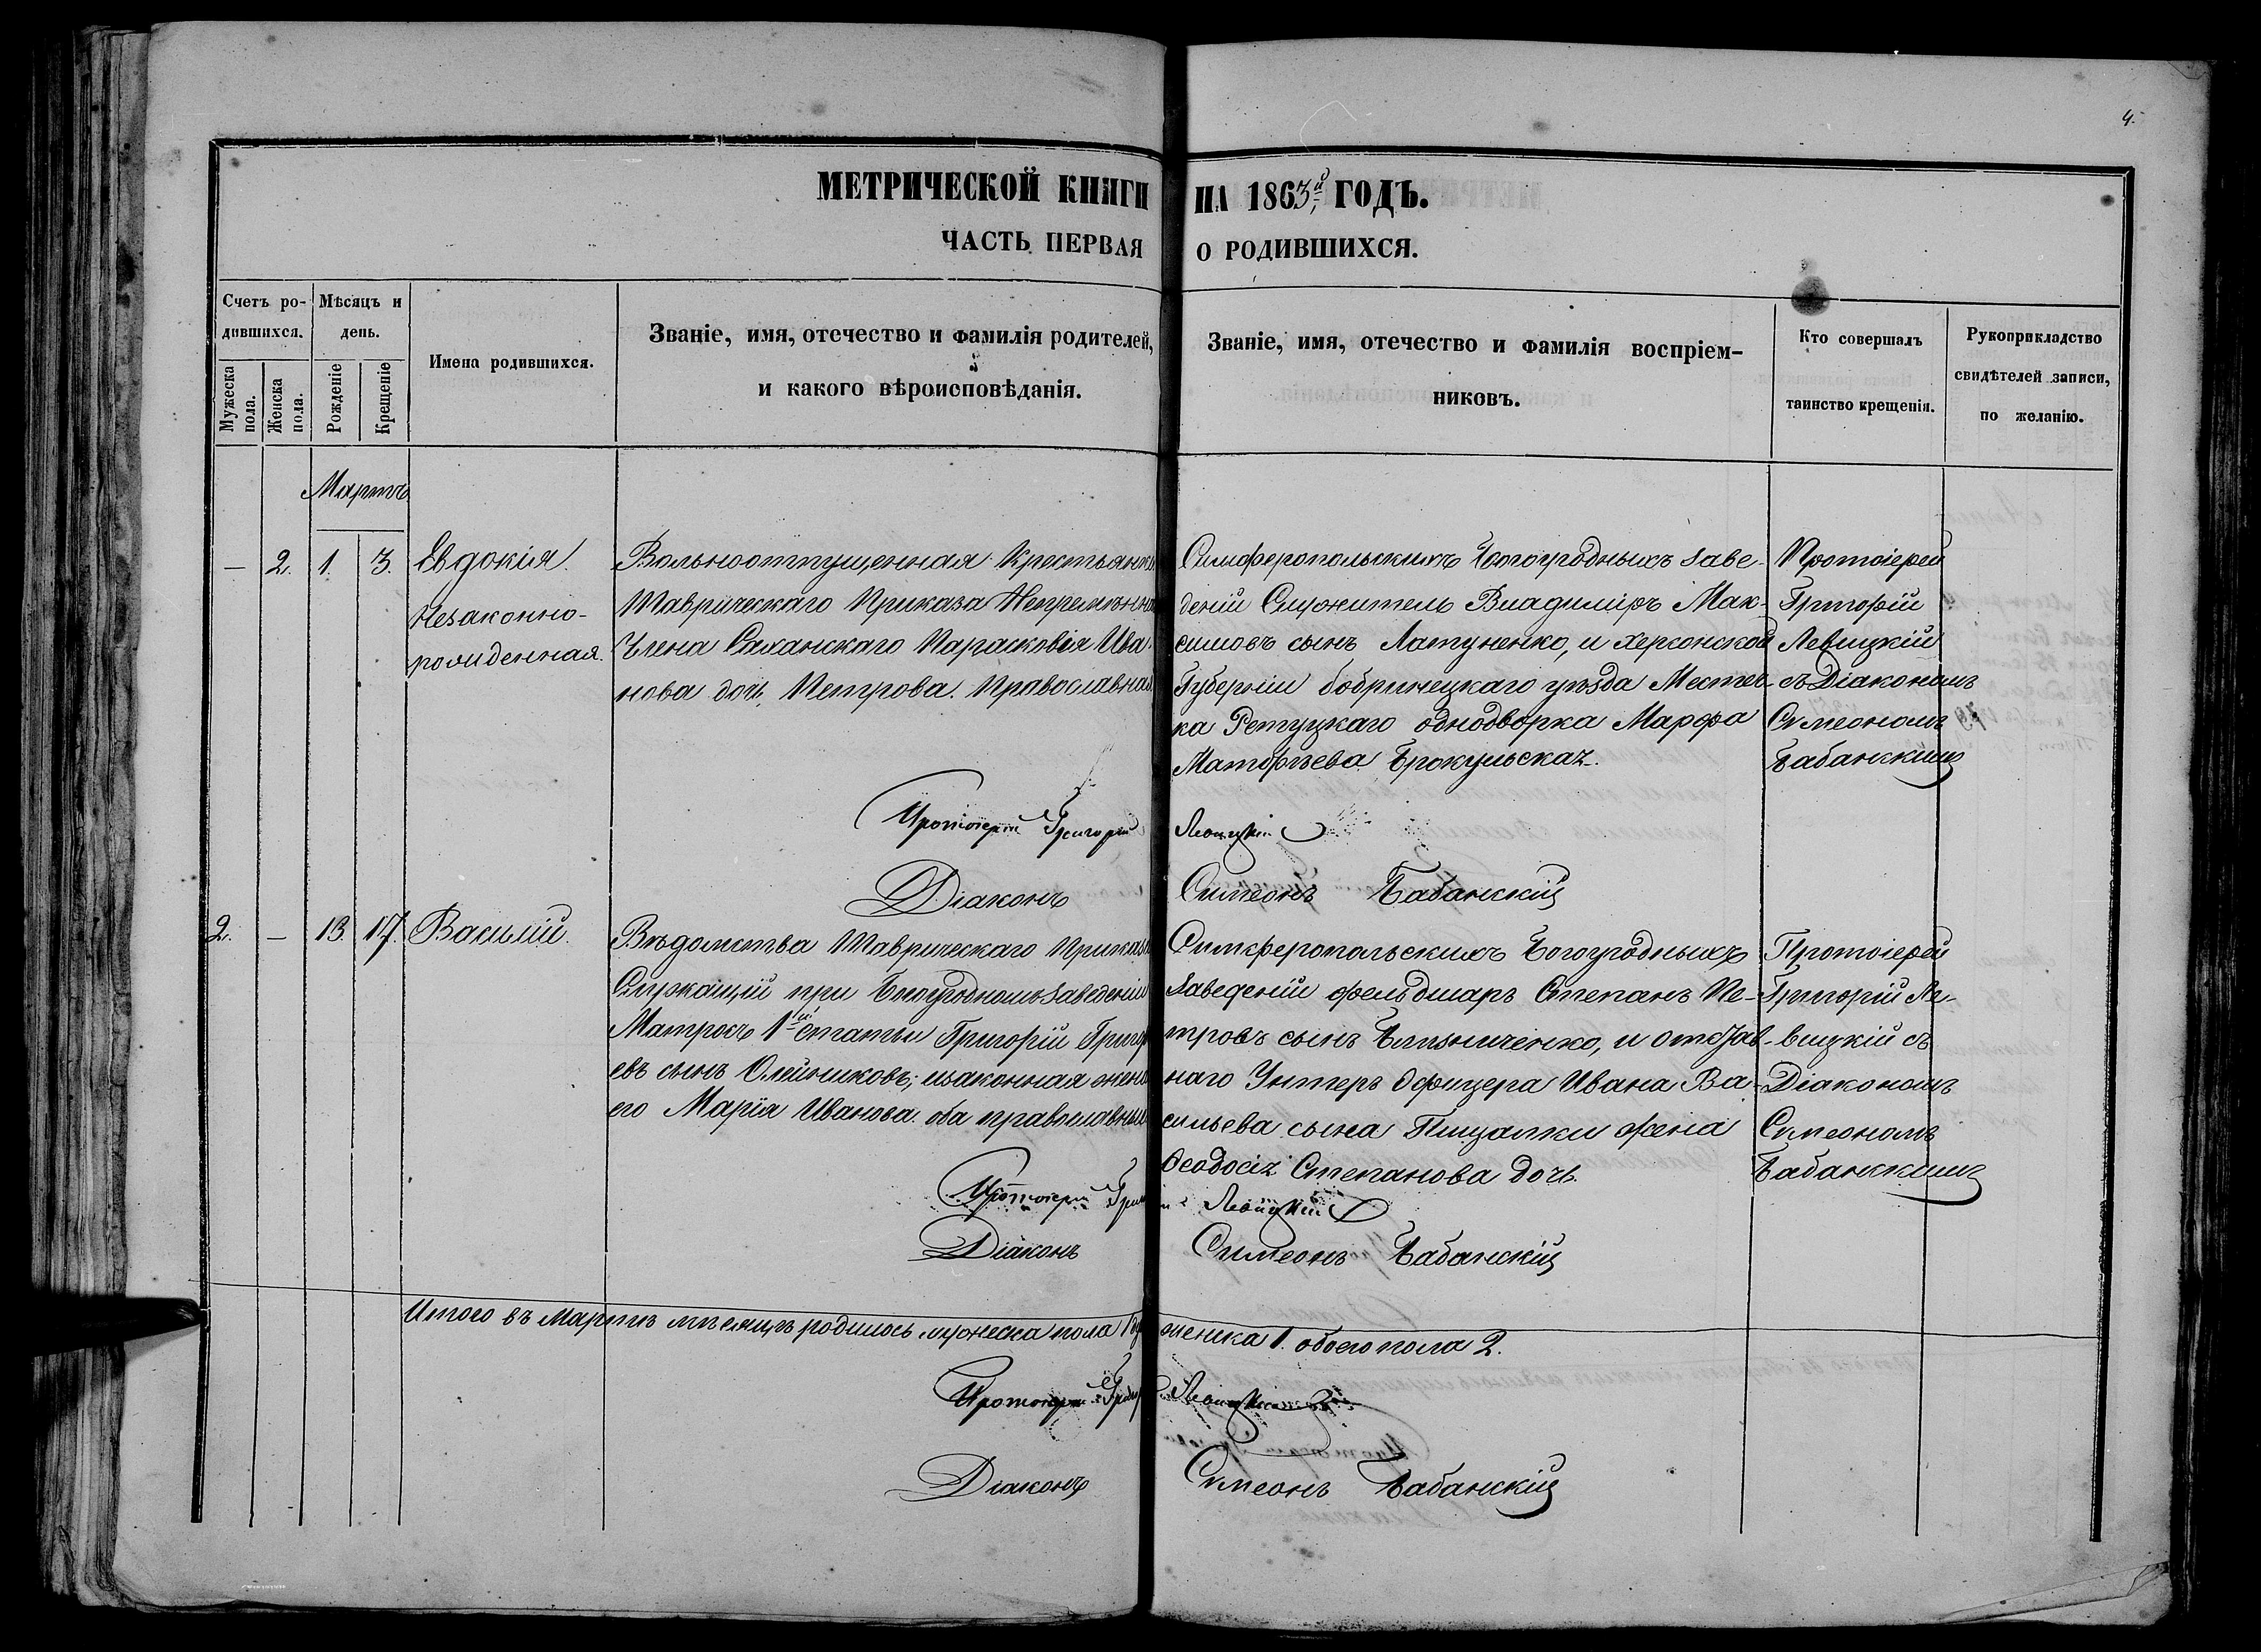 4.
МЕТРИЧЕСКОЙ КНИГИ НА 1863й ГОДЪ.
ЧАСТЬ ПЕРВАЯ О РОДИВШИХСЯ.
Счетъ ро-
дившихся.
Мужеска пола.
Женска пола.
Мѣсяцъ и
день.
Рожденіе
Крещеніе
Имена родившихся.
Званіе, имя, отечество и фамилія родителей,
и какого вѣроисповѣданія.
Званіе, имя, отечество и фамилія воспріем-
никовъ.
Кто совершалъ
таинство крещенія.
Рукоприкладство
свидѣтелей записи,
по желанію.
Мартъ
— 2. 1. 3.
Евдокія
Незаконно-
рожденная.
Вольноотпущенная Крестьянка
Таврическаго Приказа Непремѣннаго
Члена Парасковія Ива-
нова дочь Петрова. Православная
Симферопольскихъ Богоугодныхъ Заве-
деній Служитель Владиміръ Мак-
симовъ сынъ Латуненко, и Херсонской
Губерніи Бобринецкаго уѣзда Местеч-
ка однодворка Марфа
Матфѣева
Протоіерей
Григорій
Левицкій
съ Діакономъ
Симеономъ
Бабанскимъ
Протоіерей Григорій Левицкій
Діаконъ Симеонъ Бабанскій
2. — 13. 17.
Василій.
Вѣдомства Таврическаго Приказа
Служащій при Богоугодномъ Заведеніи
Матросъ 1й статьи Григорій Григорь
евъ сынъ Олейниковъ; и законная жена
его Марія Иванова. оба православные
Симферопольскихъ Богоугодныхъ
Заведеній фельдшаръ Степанъ Пе-
тровъ сынъ и отстав-
наго Унтеръ Офицера Ивана Ва-
сильева сына Пищалки жена
Ѳеодосія Степанова дочь.
Протоіерей
Григорій Ле-
вицкій съ
Діакономъ
Симеономъ
Бабанскимъ
Протоіерей Григорій Левицкій
Діаконъ Симеонъ Бабанскій
Итого въ Мартѣ мѣсяцѣ родилось мужеска пола 1 женска 1. обоего пола 2.
Протоіерей Григорій Левицкій
Діаконъ Симеонъ Бабанскій